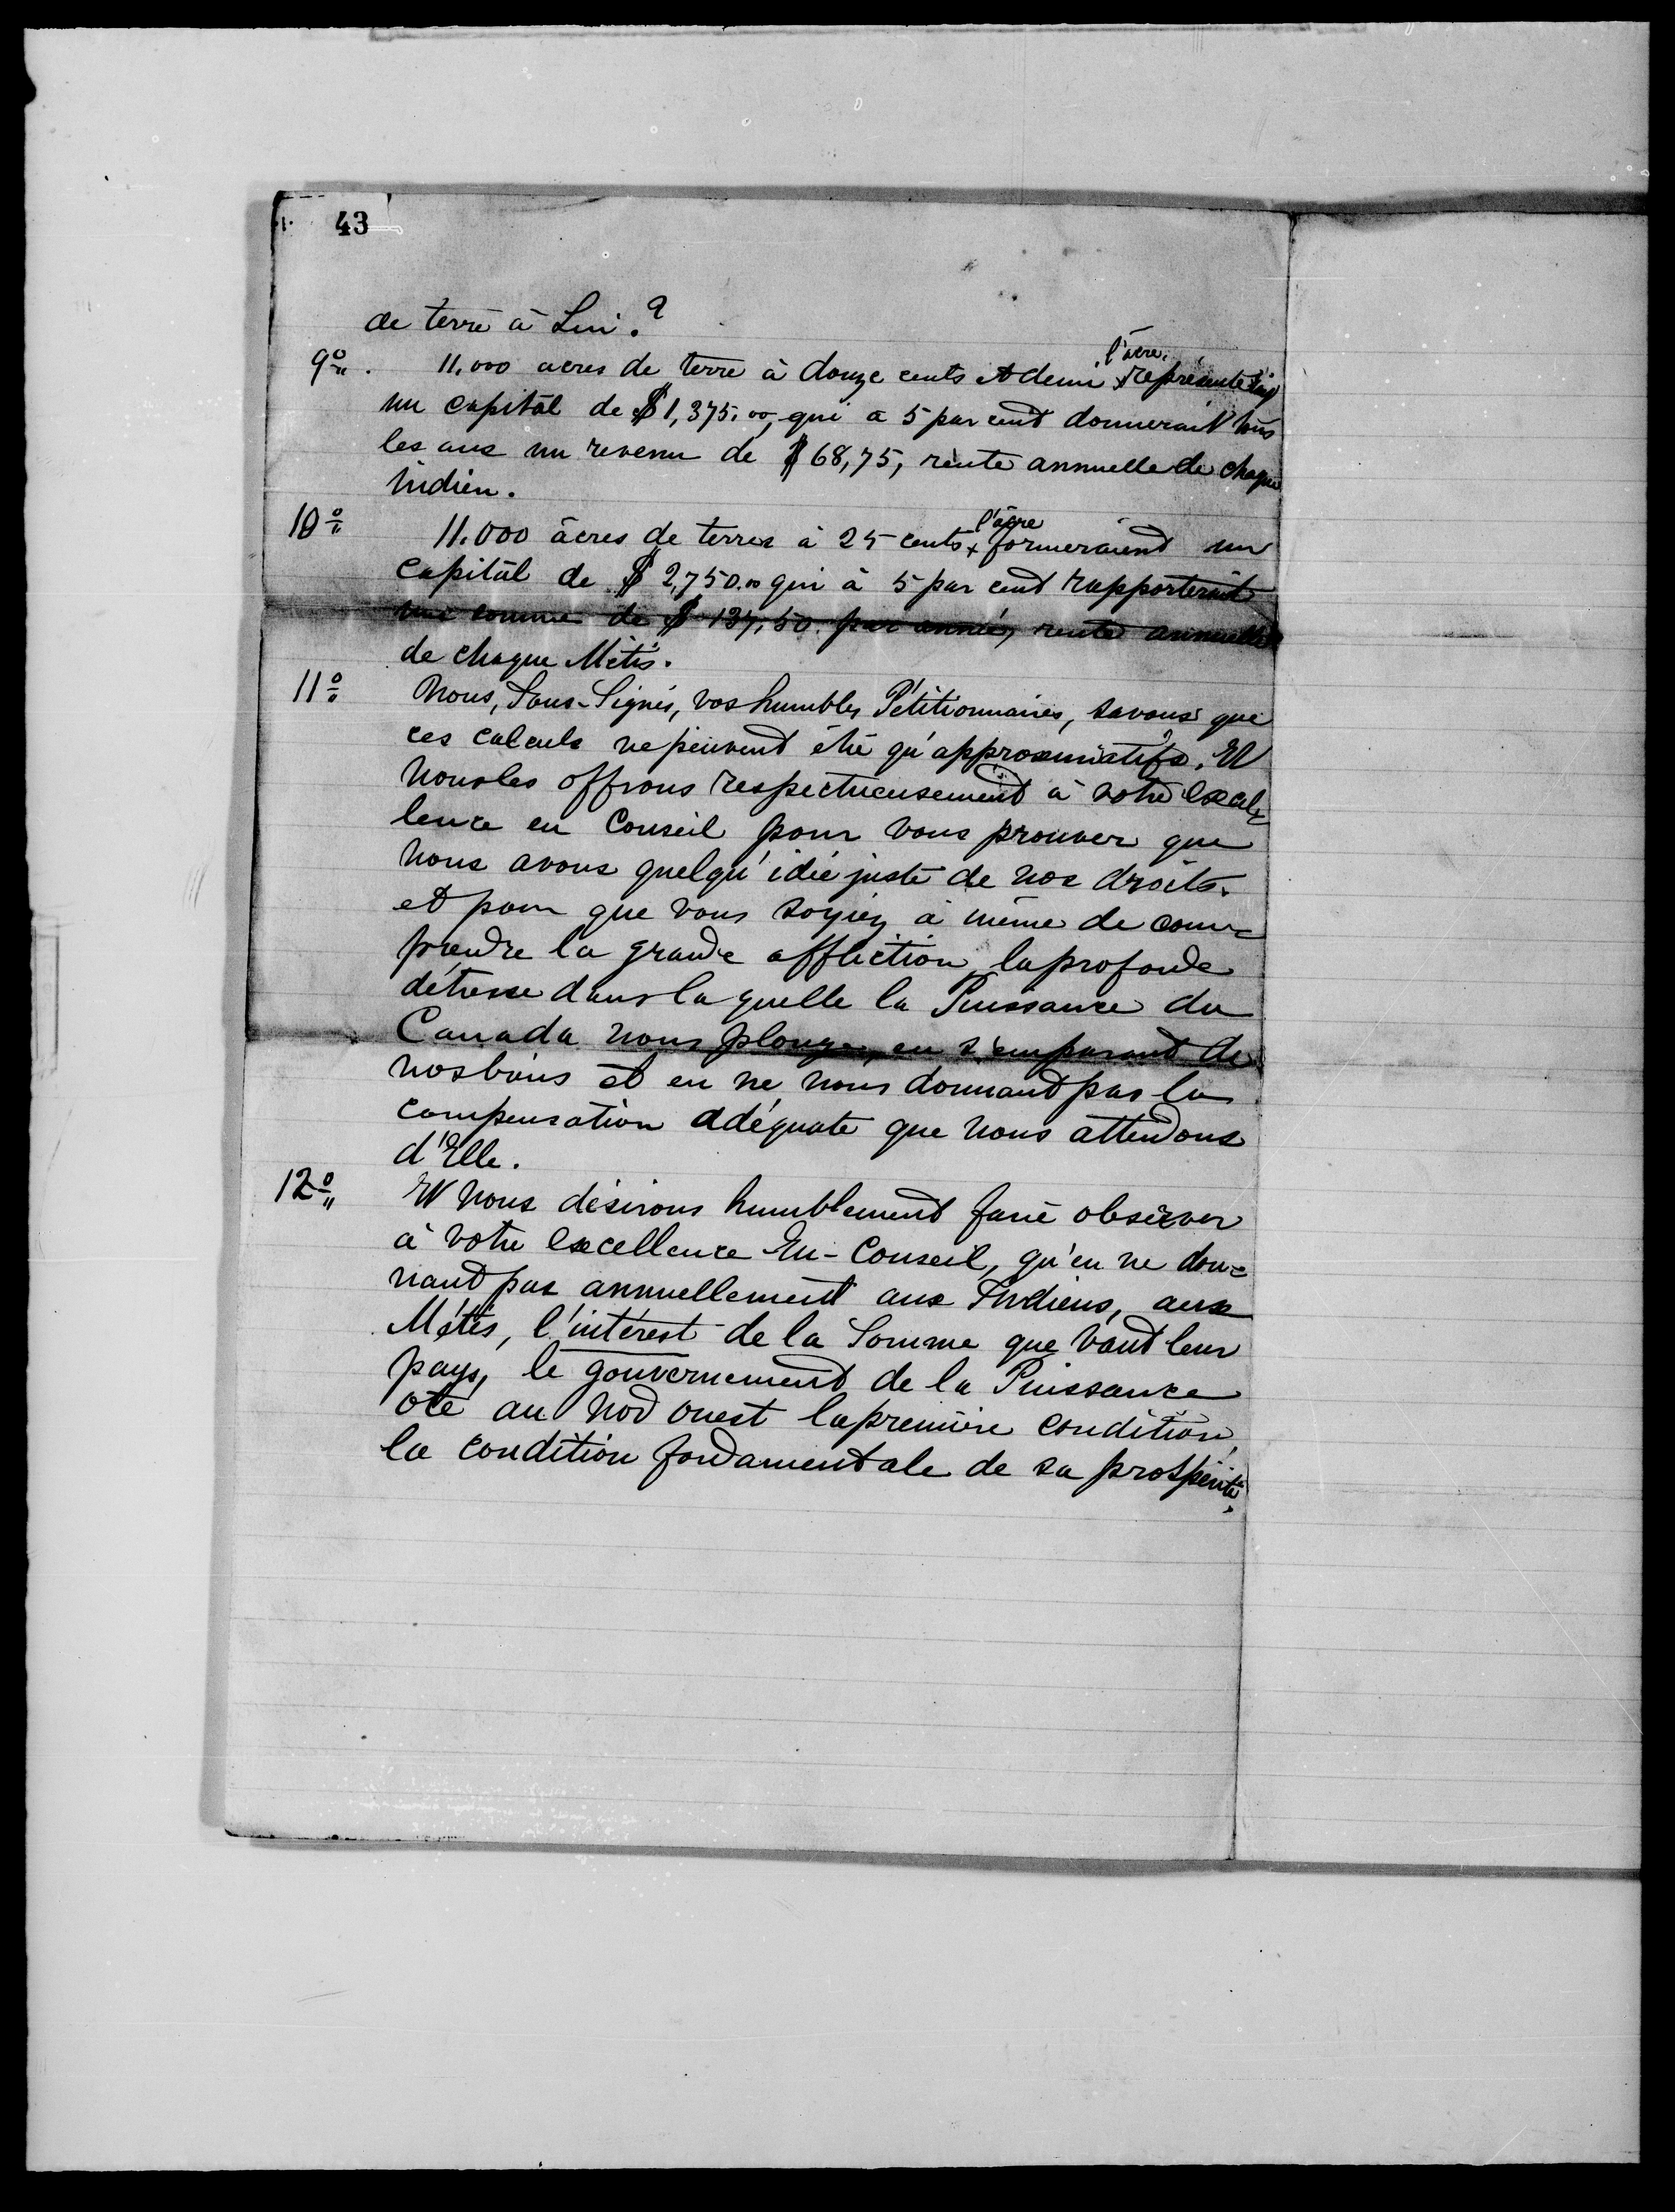 43
de terre à Lui.?
9º. 11,000 acres de terre à douze cents et demi l'acre, représentai
un capital de $1,375.00, qui a 5 par cent donnerait tous
les ans un revenu de $68,75, rente annuelle de chaque
indien.
10º 11.000 âcres de terres à 25 cents l'âcre formeraient un
capital de $2,750.00 qui à 5 par cent rapporterait
une somme de $137,50. par année, rente annuelle
de chaque Métis.
11º Nous, Sous-Signés, vos humbles Pétitionnaires, savons que
ces calculs ne peuvent être qu'approximatifs. Et
Nous les offrons respectueusement à votre Excel=
lence en Conseil pour vous prouver que
nous avons quelqu'idée juste de nos droits.
et pour que vous soyiez à même de com=
prendre la grande affliction, la profonde
détresse dans laquelle la Puissance du
Canada nous plonge, en s'emparant de
nos biens et en ne nous donnant pas la
compensation adéquate que nous attendons
d'Elle.
12º Et nous désirons humblement faire observer
à votre Excellence En-Conseil, qu'en ne don=
nant pas annuellement aux Indiens, aux
Métis, l'intérest de la Somme que vaut leur
pays, le gouvernement de la Puissance
ote au Nord ouest la première condition,
la condition fondamentale de sa prospérité.